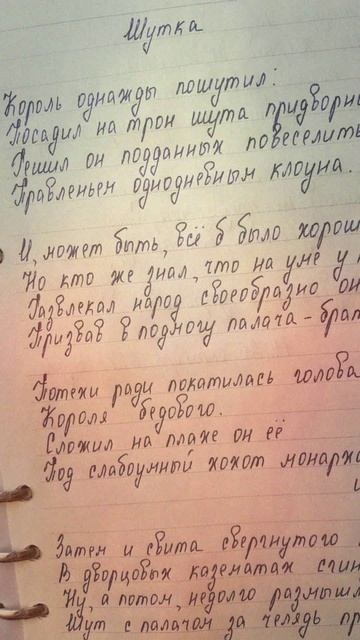 Шутка
Король однажды пошутил:
Посадил на трон шута
Решил он подданных
Правленьем однодневным клоуна.
И, может быть, всё б было
Но кто же знал, что на уме у
Развлекал народ своеобразно он
Призвав в подмогу палача -
Потехи ради покатилась голова
Короля бедового.
Сложил на плахе он её
Под слабоумный хохот
Затем и свита свергнутого
В дворцовых казематах
Ну, а потом, недолго
Шут с палачом за челядь